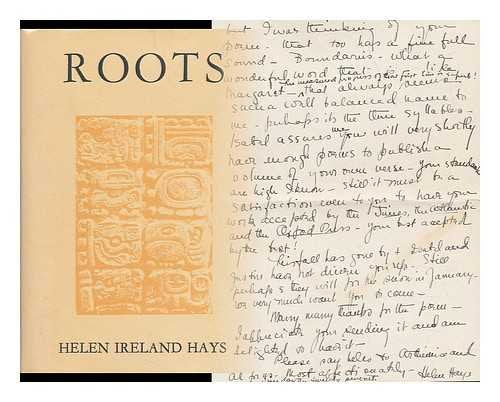 ROOTS
HELEN IRELAND HAYS
but I was thinking of your
poem. That too has a fine full
sound - Boundaries - what a
wonderful word that
the measured progress of that first line is superb!
Margaret - that always seems
such a well balanced name to
me - perhaps its the three syllables -
Isabel assures me you will very shortly
have enough poems to publish a
volume of your own verse - your standards
are high I know - still it must be a
satisfaction even to you to have your
work accepted by the Times, the Atlantic
and the Oxford Press - your best accepted
by the best!
has gone by + David and
have not driven you up. Still
perhaps they will for the snow in January -
we very much want you to come -
Many many thanks for the poem -
I appreciate your sending it and am
delighted to have it -
Please say hello to and
Most affectionately - Helen Hays